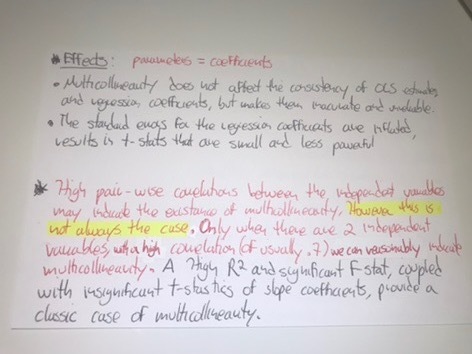 * Effects: parameters = coefficients
• Multicollinearity does not affect the consistency of OLS estimates
and regression coefficients, but makes them inaccurate and unreliable.
• The standard errors for the regression coefficients are inflated,
results in t-stats that are small and less powerful
* High pair-wise correlations between the independent variables
may indicate the existance of multicollinearity. However this is
not always the case. Only when there are 2 independent
variables, with a high correlation (of usually .7) we can reasonably indicate
multicollinearity. A High R² and significant F stat, coupled
with insignificant t-stastics of slope coefficients, provide a
classic case of multicollinearity.